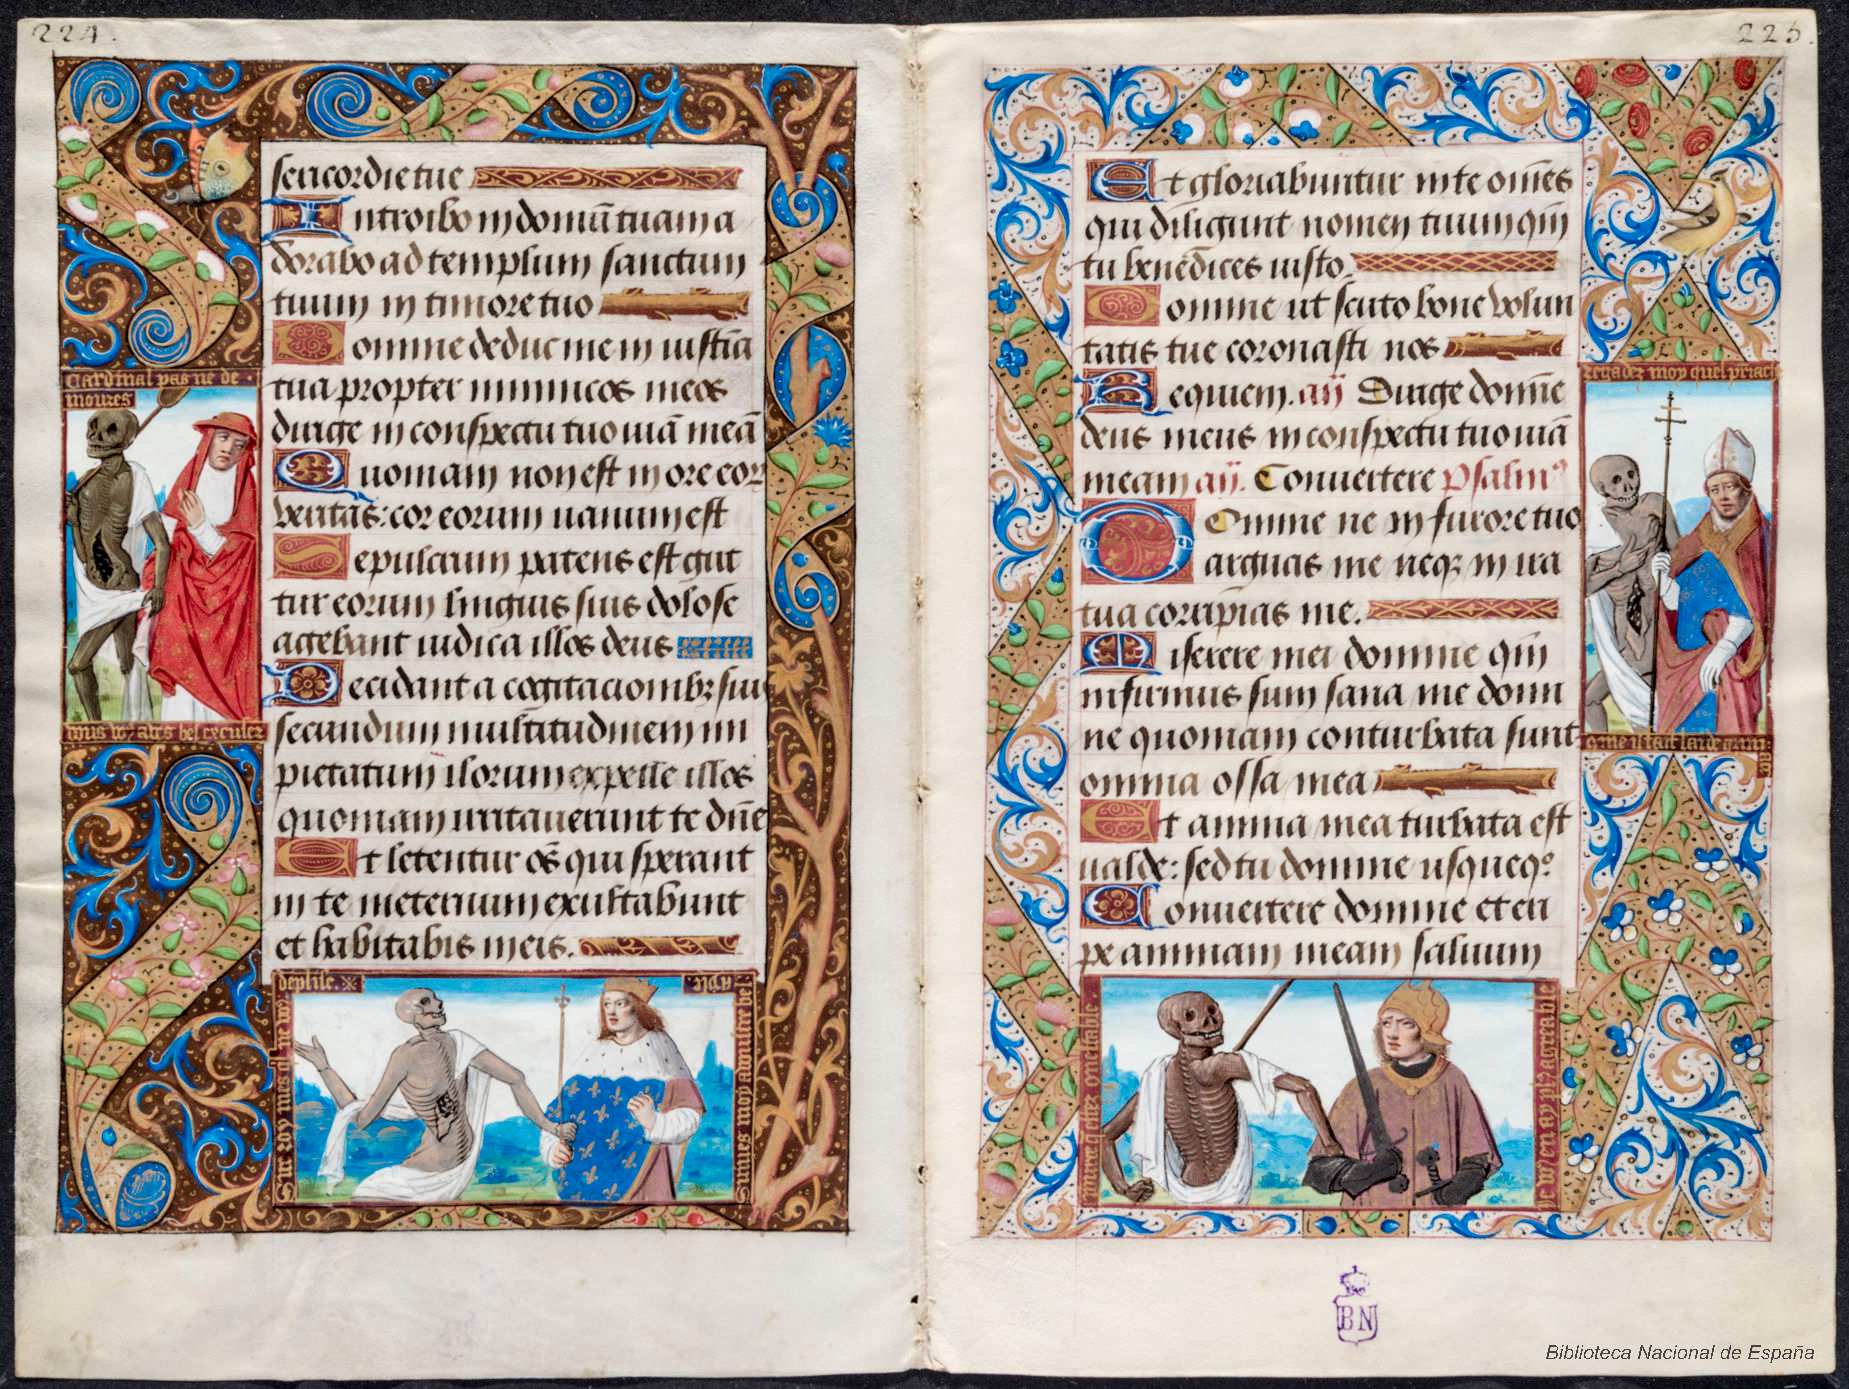 224.
sericordie tue
Introibo in domū tuam a
dorabo ad templum sanctum
tuum in timore tuo
Domine deduc me in iusticia
tua propter inimicos meos
dirige in conspectu tuo uiā meā
Quoniam non est in ore eor
ueritas: cor eorum uanum est
Sepulcrum patens est gut
tur eorum linguis suis dolose
agebant iudica illos deus
Decidant a cogitacionibꝫ suis
secundum multitudinem im
pietatum ilorum expelle illos
quoniam irritauerunt te dn̄e
Et letentur oēs qui sperant
in te in eternum exultabunt
et habitabis in eis.
Cardinal pas ne de
moures
depl'ile.
225.
Et gloriabuntur in te om̄es
qui diligunt nomen tuum qm̄
tu benedices iusto
Domine ut scuto bone volun
tatis tue coronasti nos
Requiem. añ Dirige domine
deus meus in conspectu tuo uiā
meam añ. Conuertere psalm⁹
Domine ne in furore tuo
arguas me neqꝫ in ira
tua corripias me.
Miserere mei domine qm̄
infirmus sum sana me domi
ne quoniam conturbata sunt
omnia ossa mea
Et anima mea turbata est
ualde: sed tu domine usqueq⁰
Conuertere domine et eri
pe animam meam saluum
BN
Biblioteca Nacional de España